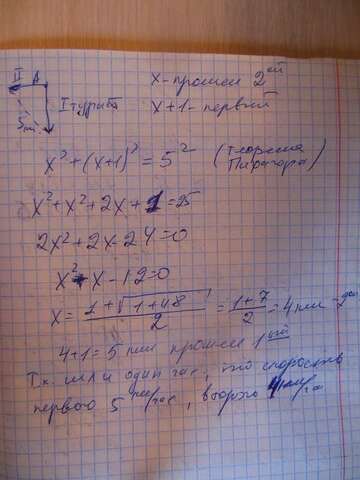 II A x - прошел 2ой
I турист x+1 - первый
5км
x² + (x+1)² = 5² (Теорема Пифагора)
x² + x² + 2x + 1 = 25
2x² + 2x - 24 = 0
x² + x - 12 = 0
x = 1+√1+48 / 2 = 1+7 / 2 = 4 км - 2ой
4+1 = 5 км прошел 1ый
Т.к. шли один час, то скорость
первого 5 км/час, второго 4 км/час